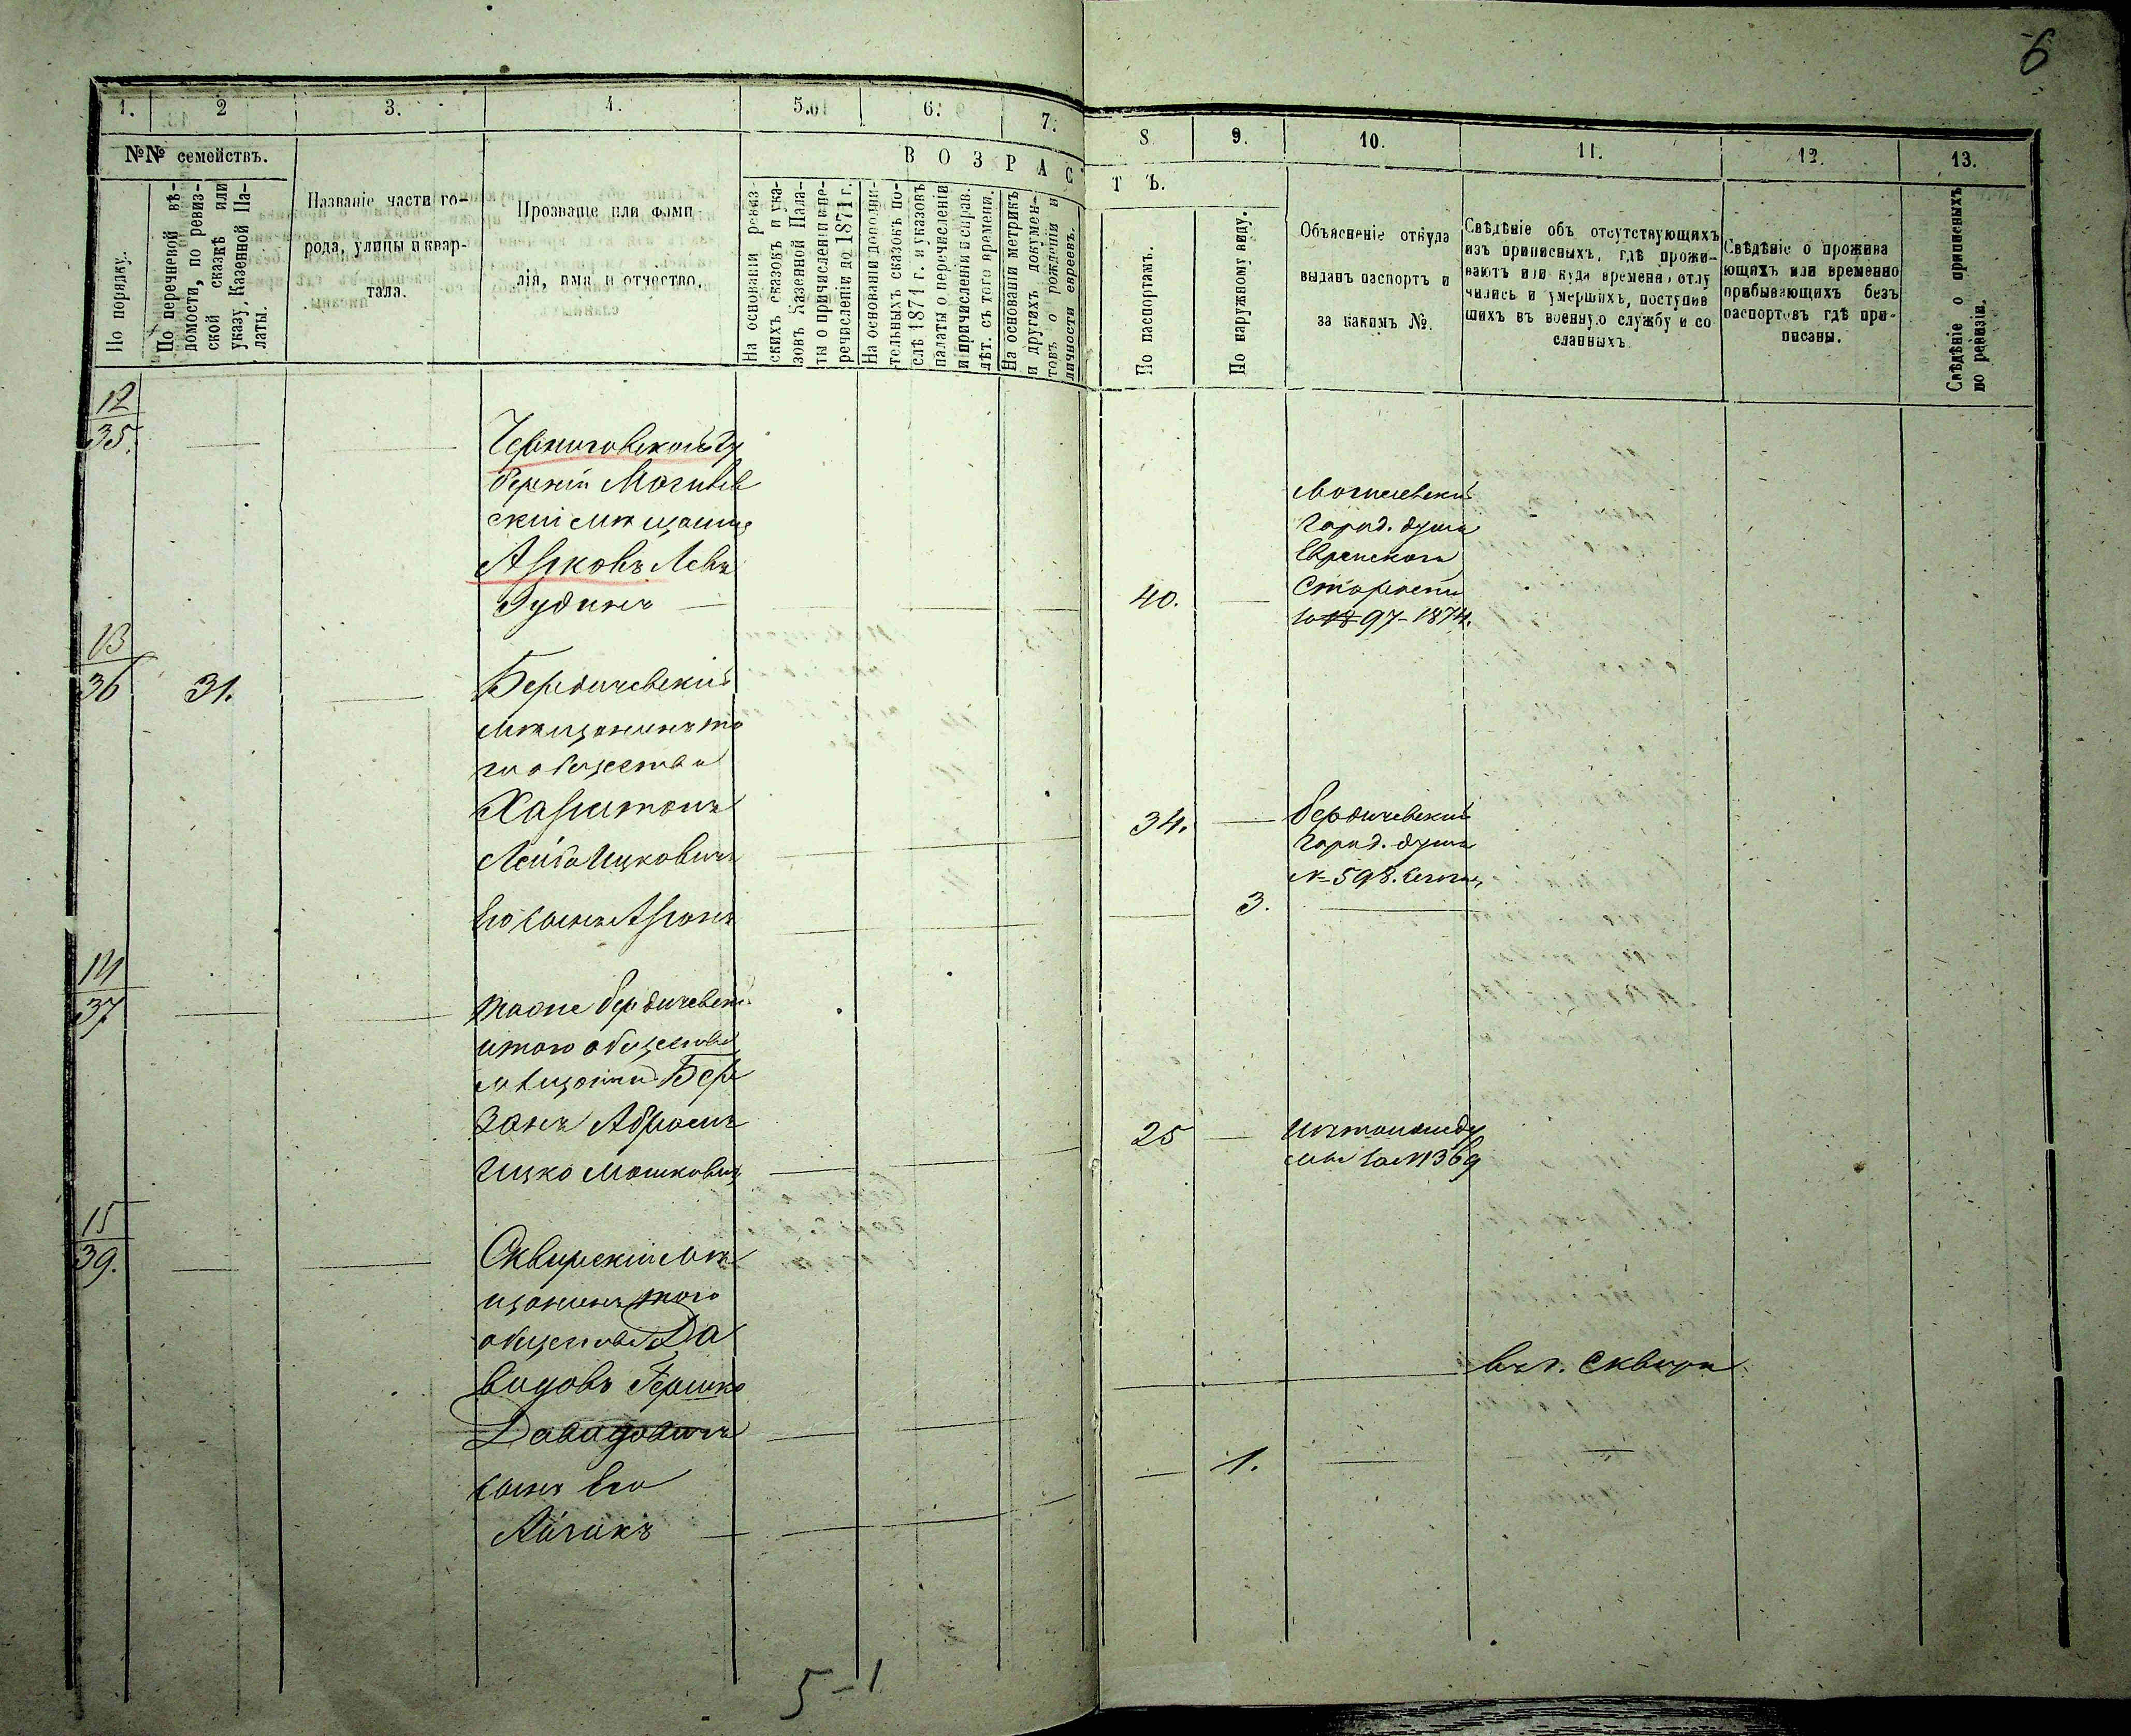 6
1. 2 3. 4. 5. 6. 7. 8 9. 10. 11. 12. 13.
№№ семействъ.
По порядку.
По перечневой вѣ-
домости, по ревиз-
ской сказкѣ или
указу, Казенной Па-
латы.
Названіе части го-
рода, улицы и квар-
тала.
Прозваніе или фами
лія, имя и отчество.
ВОЗРАСТЪ.
На основаніи ревиз-
скихъ сказокъ и ука-
зовъ Казенной Пала-
ты о причисленіи и пе-
речисленіи до 1871 г.
На основаніи дополни-
тельныхъ сказокъ по-
слѣ 1871 г. и указовъ
палаты о перечисленіи
и причисленіи и справ.
лѣт. съ того времени.
На основаніи метрикъ
и другихъ докумен-
товъ о рожденіи и
личности евреевъ.
По паспортамъ.
По наружному виду.
Объясненіе откуда
выданъ паспортъ и
за какимъ №.
Свѣдѣніе объ отсутствующихъ
изъ приписныхъ, гдѣ прожи-
ваютъ или куда времена, отлу
чились и умершихъ, поступив
шихъ въ военную службу и со
сланныхъ
Свѣдѣніе о прожива
ющихъ или временно
прибывающихъ безъ
паспортовъ гдѣ при-
писаны.
Свѣдѣніе о приписныхъ
по ревизіи.
12
35.
Черниговской Гу
берніи Могилев
скій мѣщанинъ
Арковъ Лева
Юдинъ
40.
Могилевскій
Город. дума
Еврейскаго
Старосты
за № 97-1874.
13
36 31.
Бердичевскій
мѣщанинъ то
го общества
Харитонъ
Лейба Ицковичъ
34.
Бердичевскій
Город. дума
№ 598.
Его сынъ Аронъ
3.
14
37
тоже бердичевскій
и того общества
мѣщанинъ Бер
занъ Абрамъ
Ицко Мошковичъ
25
изъ той же ду
мы за № 369
15
39.
Сквирскій мѣ
щанинъ того
общества Да
видовъ Гершко
Давидовичъ
въ г. Сквирѣ
сынъ его
Айзикъ
1.
5-1